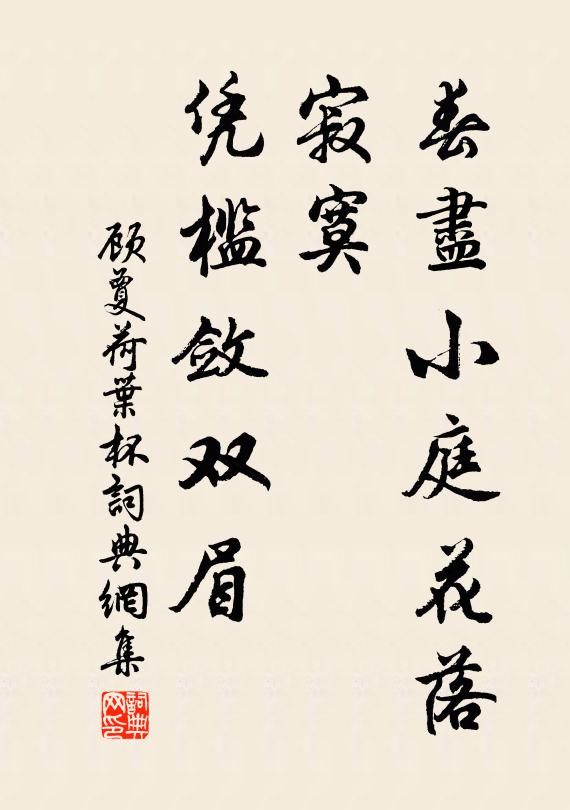 春盡小庭花落
寂寞
凭檻斂双眉
顾敻荷葉杯詞典網集
詞典网印